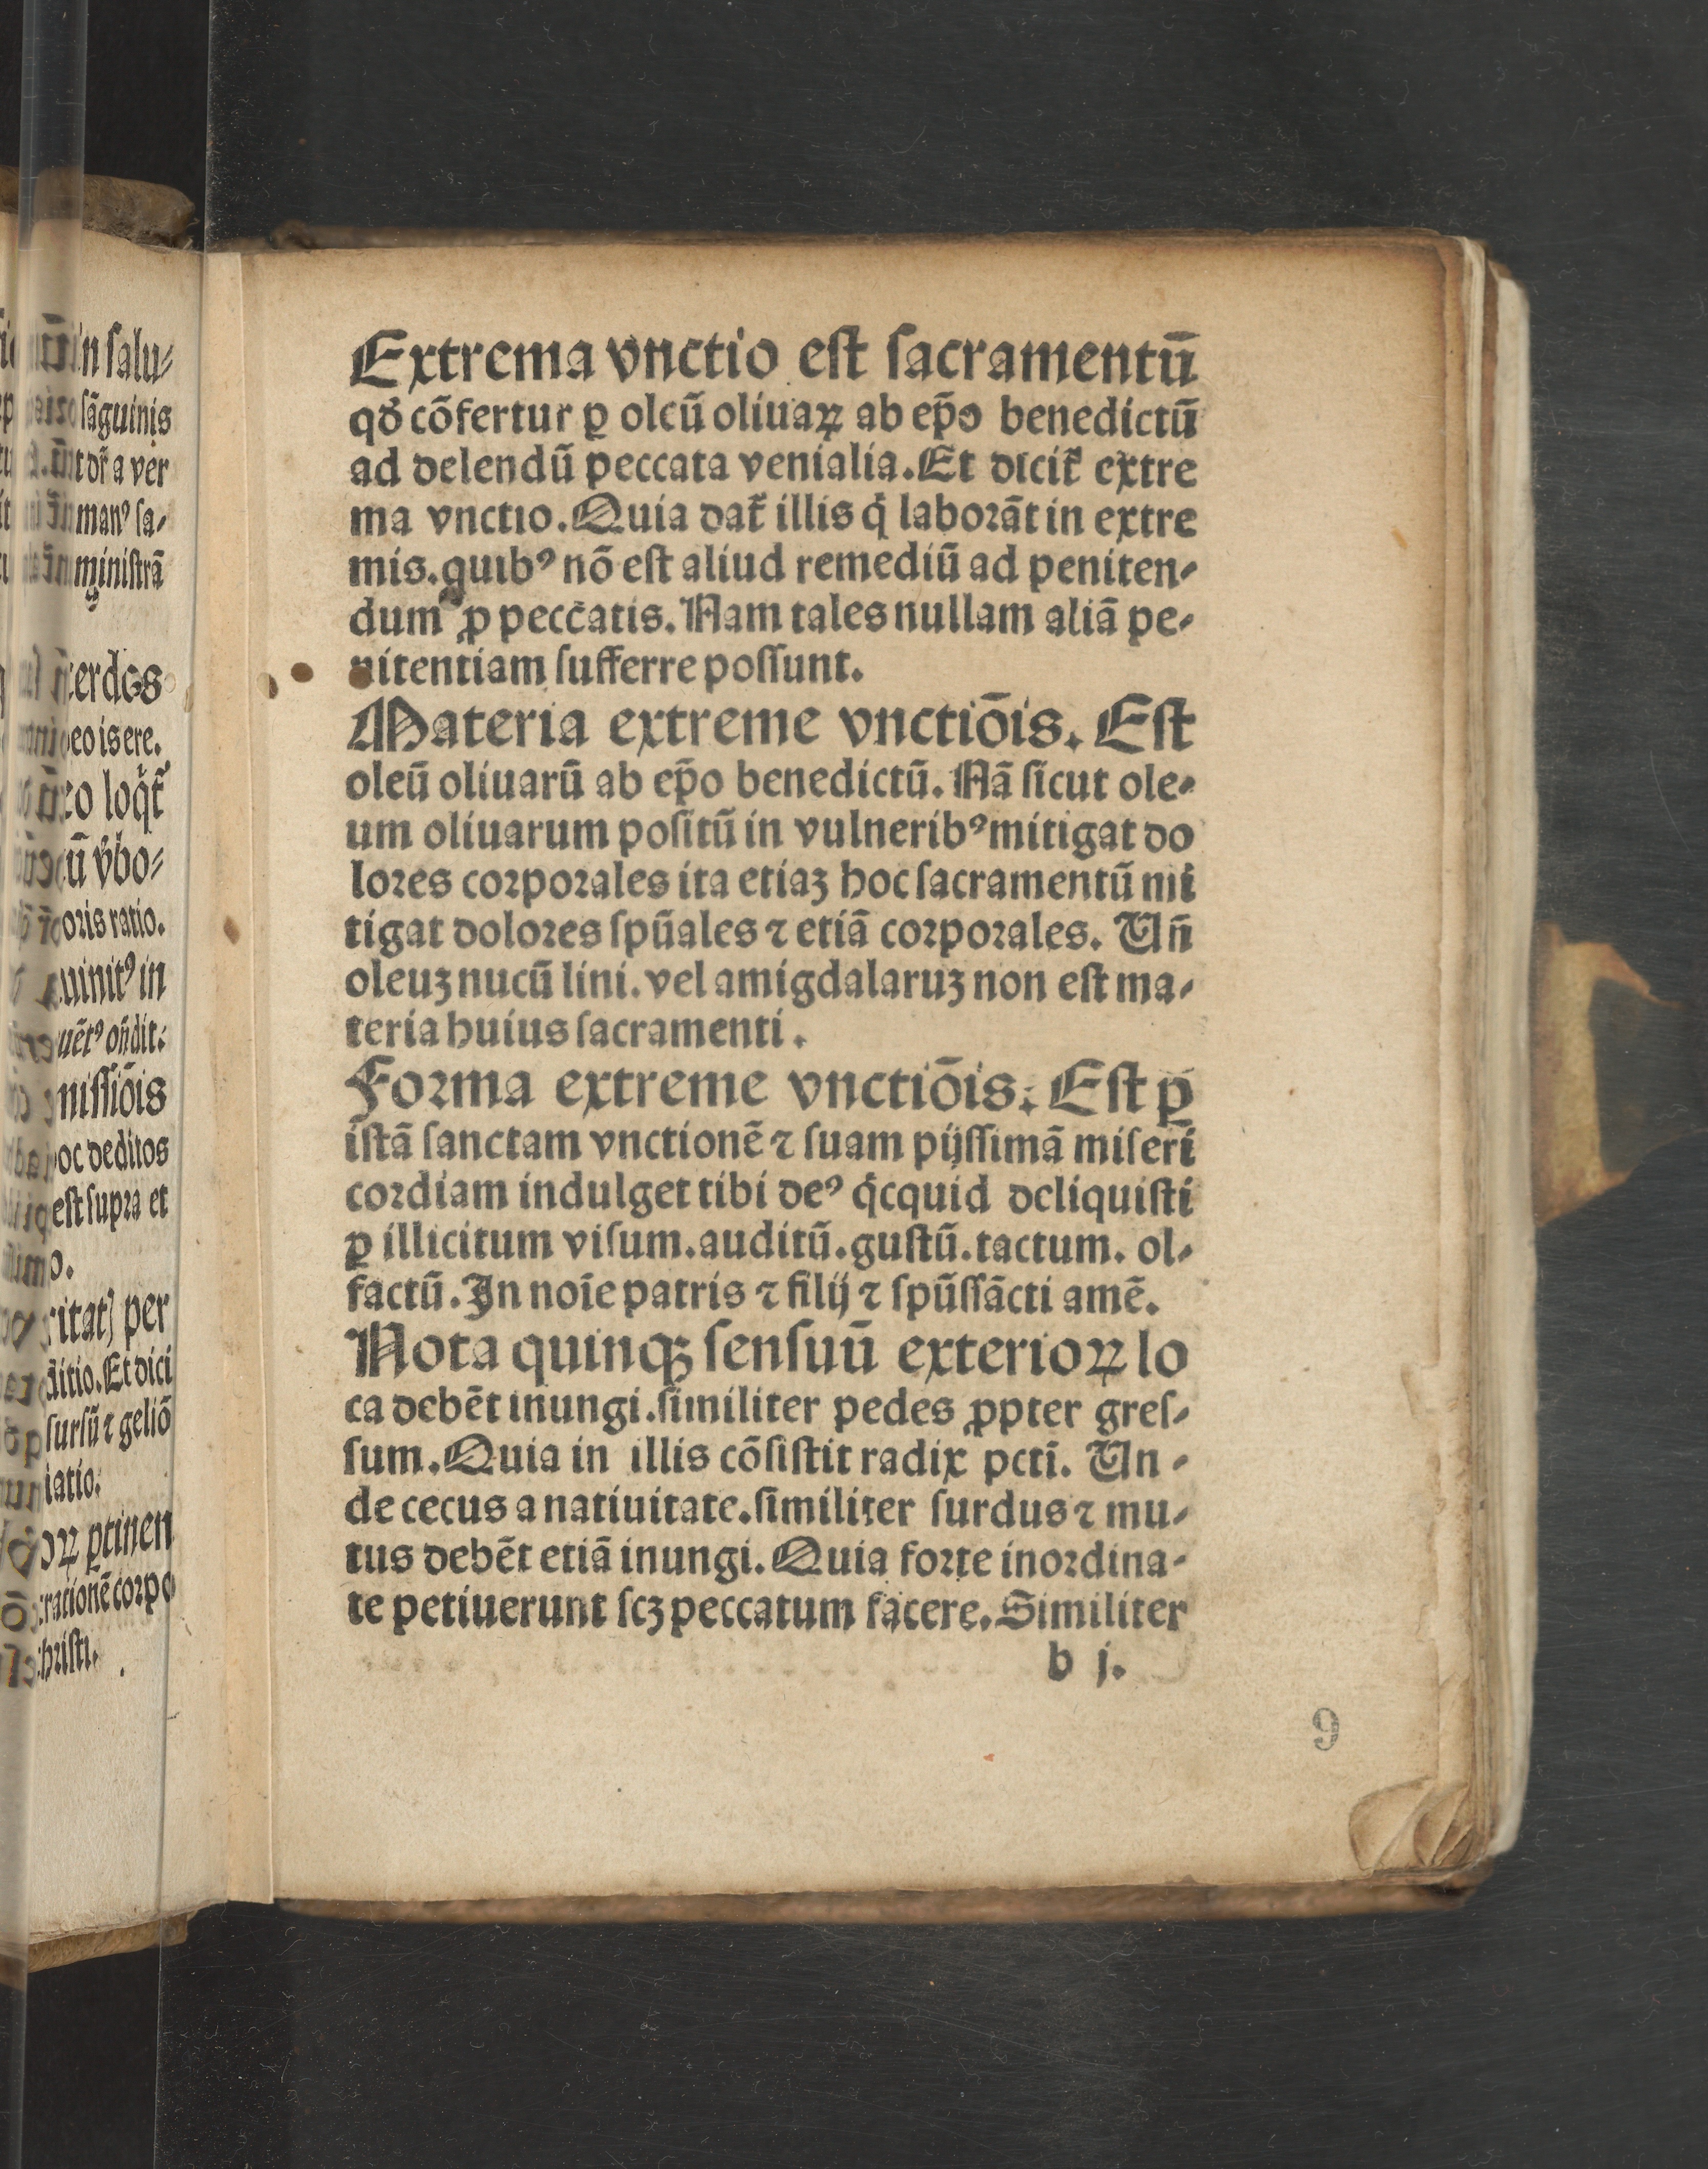 Extrema vnctio eſt ſacramentū
qď cōfertur ꝑ oleū oliuaꝝ ab ep̄o benedictū
ad delendū peccata venialia. Et dicit᷑ extre
ma vnctio. Quia dat᷑ illis q̇ laborāt in extre
mis. quibꝰ nō eſt aliud remediū ad peniten⸗
dum ꝓ peccatis. Nam tales nullam aliā pe⸗
nitentiam ſufferre poſſunt.
Materia extreme vnctiōis. Eſt
oleū oliuarū ab ep̄o benedictū. Nā ſicut ole⸗
um oliuarum poſitū in vulneribꝰ mitigat do
lores corporales ita etiaꝫ hoc ſacramentū mi
tigat dolores ſpūales ⁊ etiā corporales. Vn̄
oleuꝫ nucū lini. vel amigdalaruꝫ non eſt ma⸗
teria huius ſacramenti.
Forma extreme vnctiōis. Eſt ꝑ
iſtā ſanctam vnctionē ⁊ ſuam pijſſimā miſeri
cordiam indulget tibi deꝰ q̇cquid deliquiſti
ꝑ illicitum viſum. auditū. guſtū. tactum. ol⸗
factū. In noīe patris ⁊ filij ⁊ ſpūſſācti amē.
Nota quinqꝫ ſenſuū exterioꝝ lo
ca debēt inungi. ſimiliter pedes ꝓpter greſ⸗
ſum. Quia in illis cōſiſtit radix pcti̅. Vn⸗
de cecus a natiuitate. ſimiliter ſurdus ⁊ mu⸗
tus debēt etiā inungi. Quia forte inordina⸗
te petiuerunt ſcꝫ peccatum facere. Similiter
b j.
9